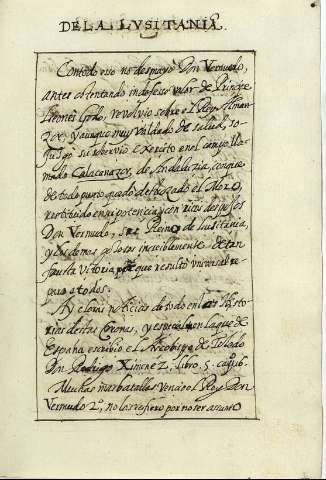 DE LA LVSITANIA.
Contodo eso no desmayó Don Vermudo,
antes obstentando invicto valor de Principe
Leones Godo, revolvio sobre el Rey Alman
zor y aunque muy valdado de salud, so
juzgo su sobervio exercito en el campo lla
mado Calacanzor, de Andaluzia, con que
de todo punto quedó destrozado el Moro,
restituido en su potencia y con ricos despojos
Don Vermudo, su Reyno de Lusitania,
y los demas gozosos increiblemente de tan
fausta Vitoria que resultó universal re
paro a todos.
Ay clori noticias de todo en las Histo
rias destas Coronas, y especial en la que de
España escribio el Arzobispo de Toledo
Don Rodrigo Ximenez, libro 5. cap. 16.
Muchas mas batallas Vencio el Rey Don
Vermudo 2º, no las refiero por no ser asumto